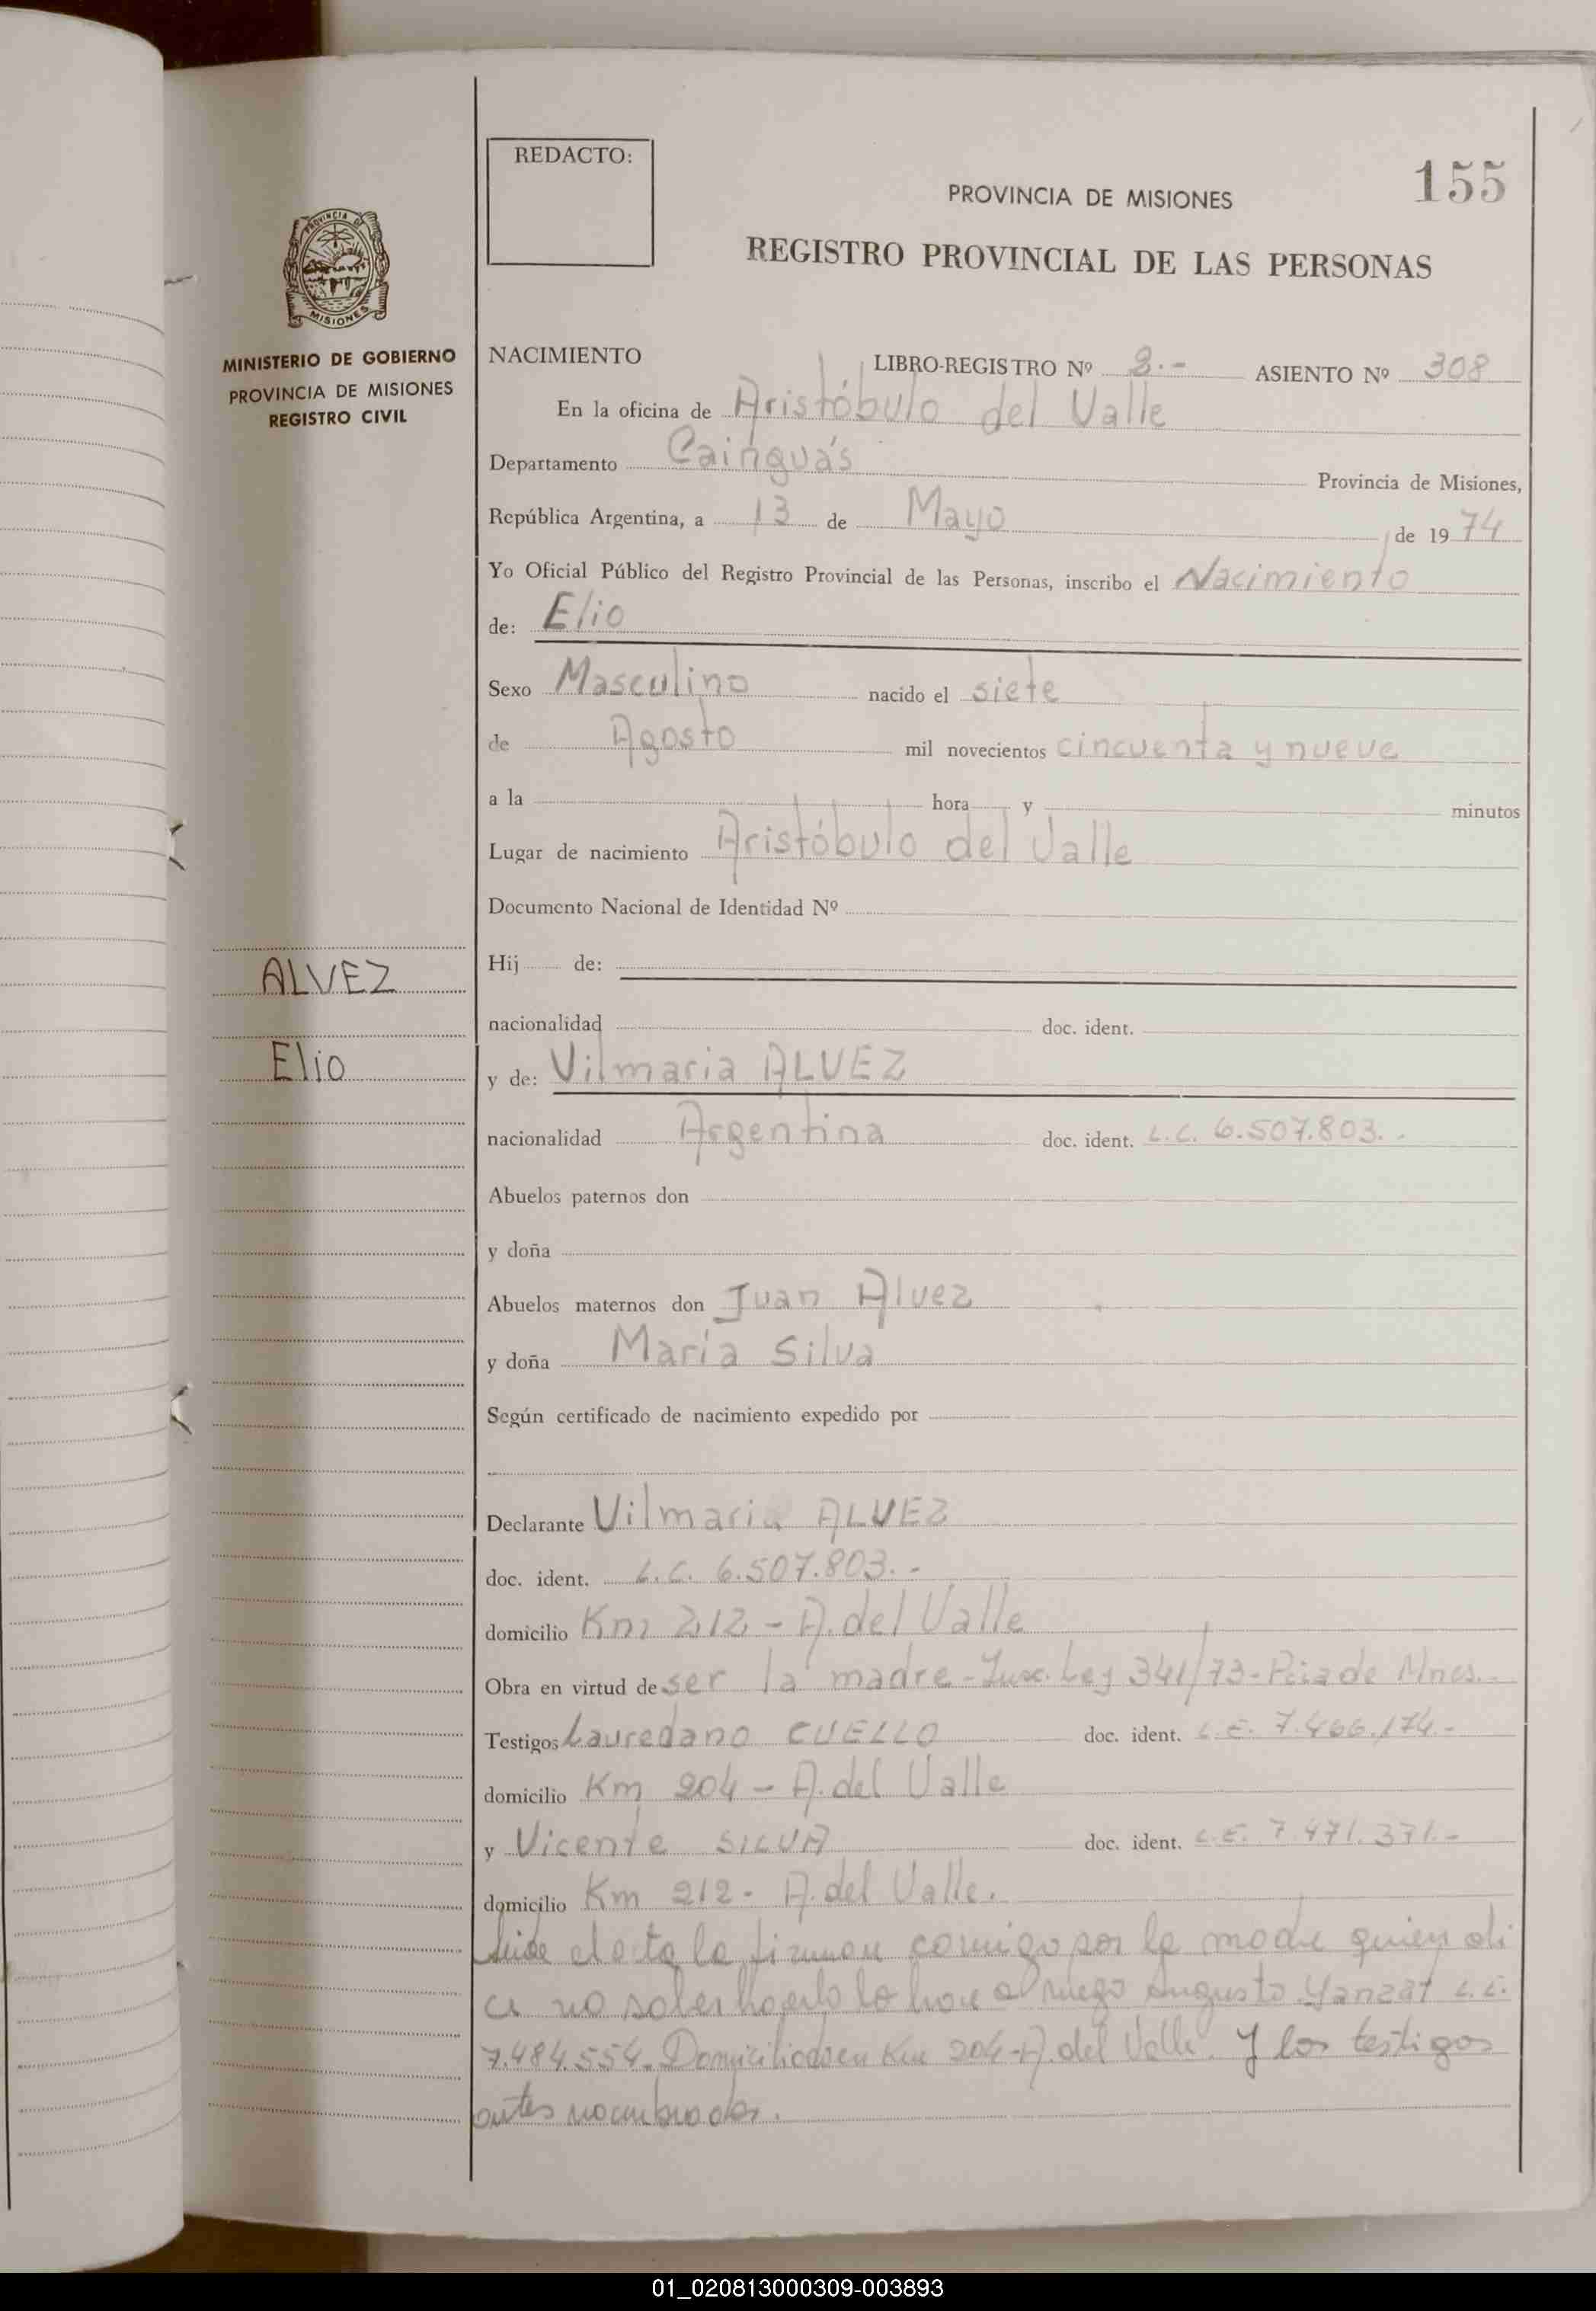 REDACTO:
155
PROVINCIA DE MISIONES
REGISTRO PROVINCIAL DE LAS PERSONAS
PROVINCIA DE
MISIONES
MINISTERIO DE GOBIERNO
PROVINCIA DE MISIONES
REGISTRO CIVIL
ALVEZ
Elio
NACIMIENTO LIBRO-REGISTRO Nº 3.- ASIENTO Nº 308
En la oficina de Aristóbulo del Valle
Departamento Cainguás Provincia de Misiones,
República Argentina, a 13 de Mayo de 1974
Yo Oficial Público del Registro Provincial de las Personas, inscribo el Nacimiento
de: Elio
Sexo Masculino nacido el siete
de Agosto mil novecientos cincuenta y nueve
a la hora y minutos
Lugar de nacimiento Aristóbulo del Valle
Documento Nacional de Identidad Nº
Hij de:
nacionalidad doc. ident.
y de: Vilmaria ALVEZ
nacionalidad Argentina doc. ident. L.C. 6.507.803.-
Abuelos paternos don
y doña
Abuelos maternos don Juan Alvez
y doña María Silva
Según certificado de nacimiento expedido por
Declarante Vilmaria ALVEZ
doc. ident. L.C. 6.507.803.-
domicilio Km 212 - A. del Valle
Obra en virtud de ser la madre - Ley 341/73 - Pcia de Mnes.-
Testigos Lauredano CUELLO doc. ident. L.E. 7.466.174.-
domicilio Km 204 - A. del Valle
y Vicente SILVA doc. ident. L.E. 7.471.371.-
domicilio Km 212 - A. del Valle.
el acta la firman conmigo por la madre quien di
ce no saber hacerlo lo hace a ruego Augusto Yanzat L.E.
7.484.554. Domiciliado en Km 204 - A. del Valle. Y los testigos
antes nombrados.
01_020813000309-003893